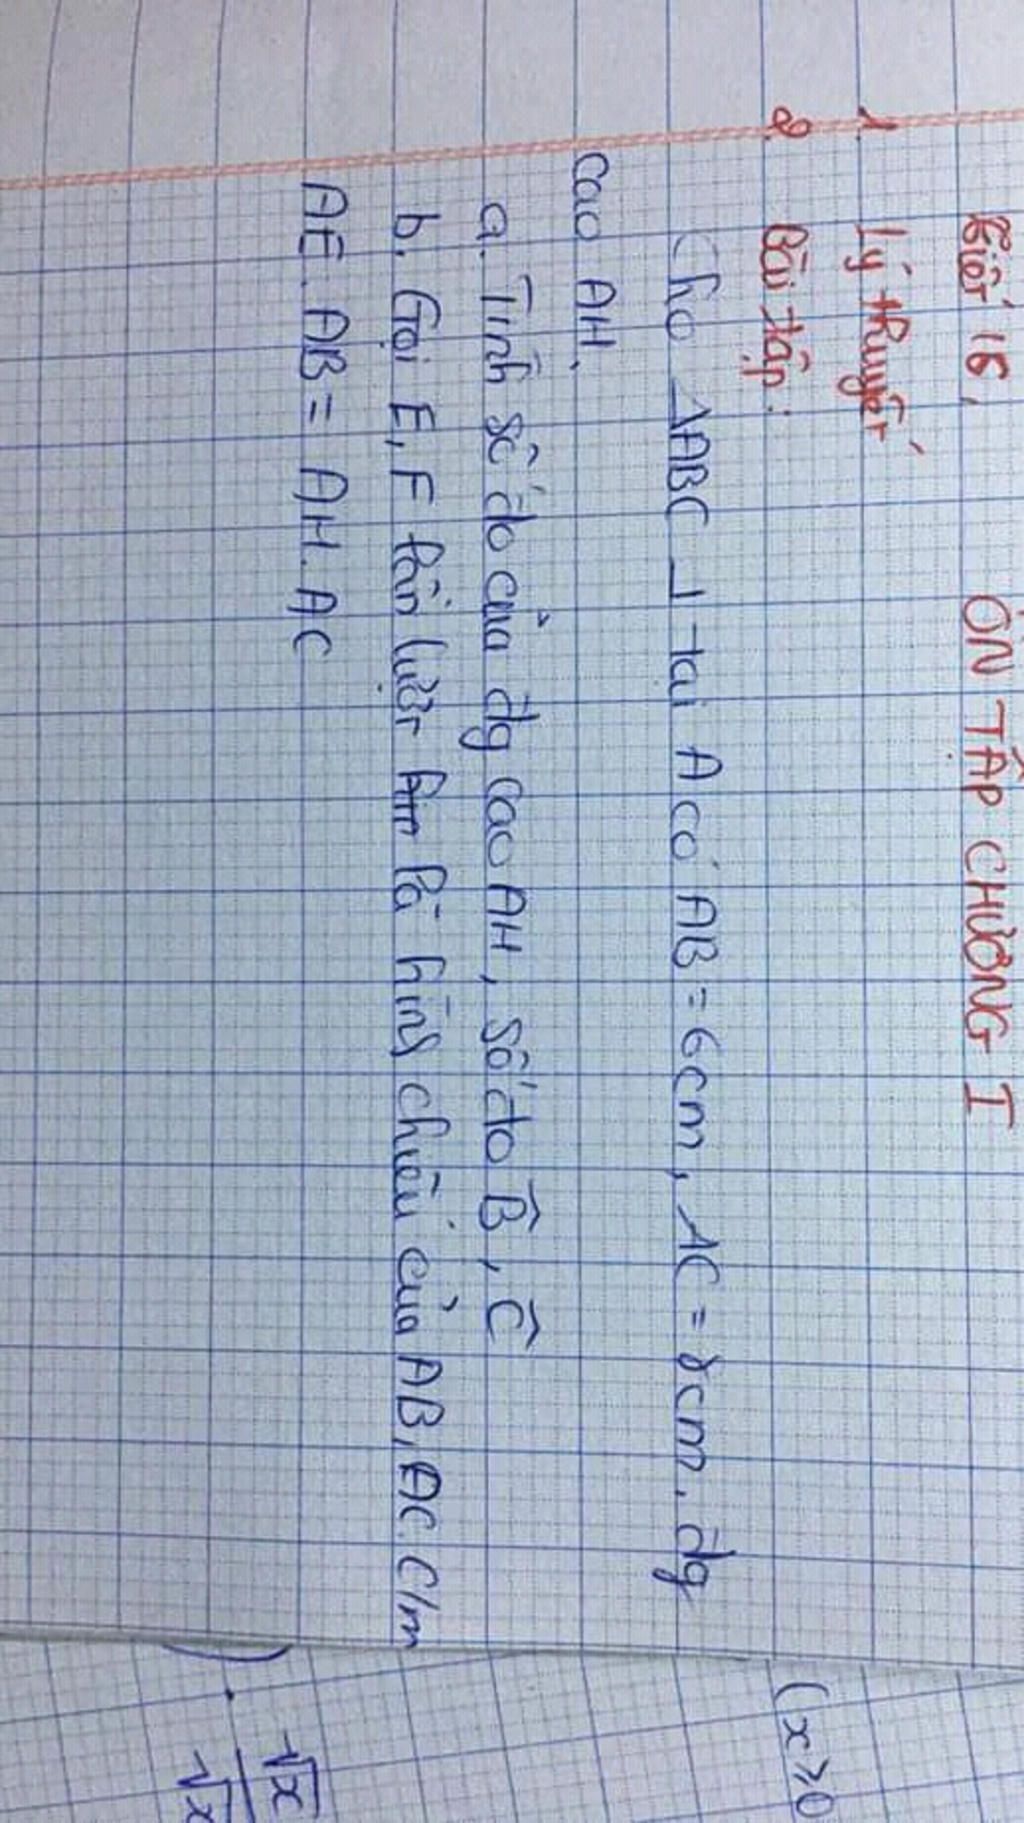 Tiết 16, ÔN TẬP CHƯƠNG I
1. Lý thuyết
2. Bài tập:
Cho ΔABC ⊥ tại A có AB = 6cm, AC = 8cm. đg
cao AH.
a. Tính số đo của đg cao AH, số đo B̂, Ĉ
b. Gọi E, F lần lượt là hình chiếu của AB, AC. C/m
AE. AB = AH. AC
(x ≥ 0
) . √x
√x